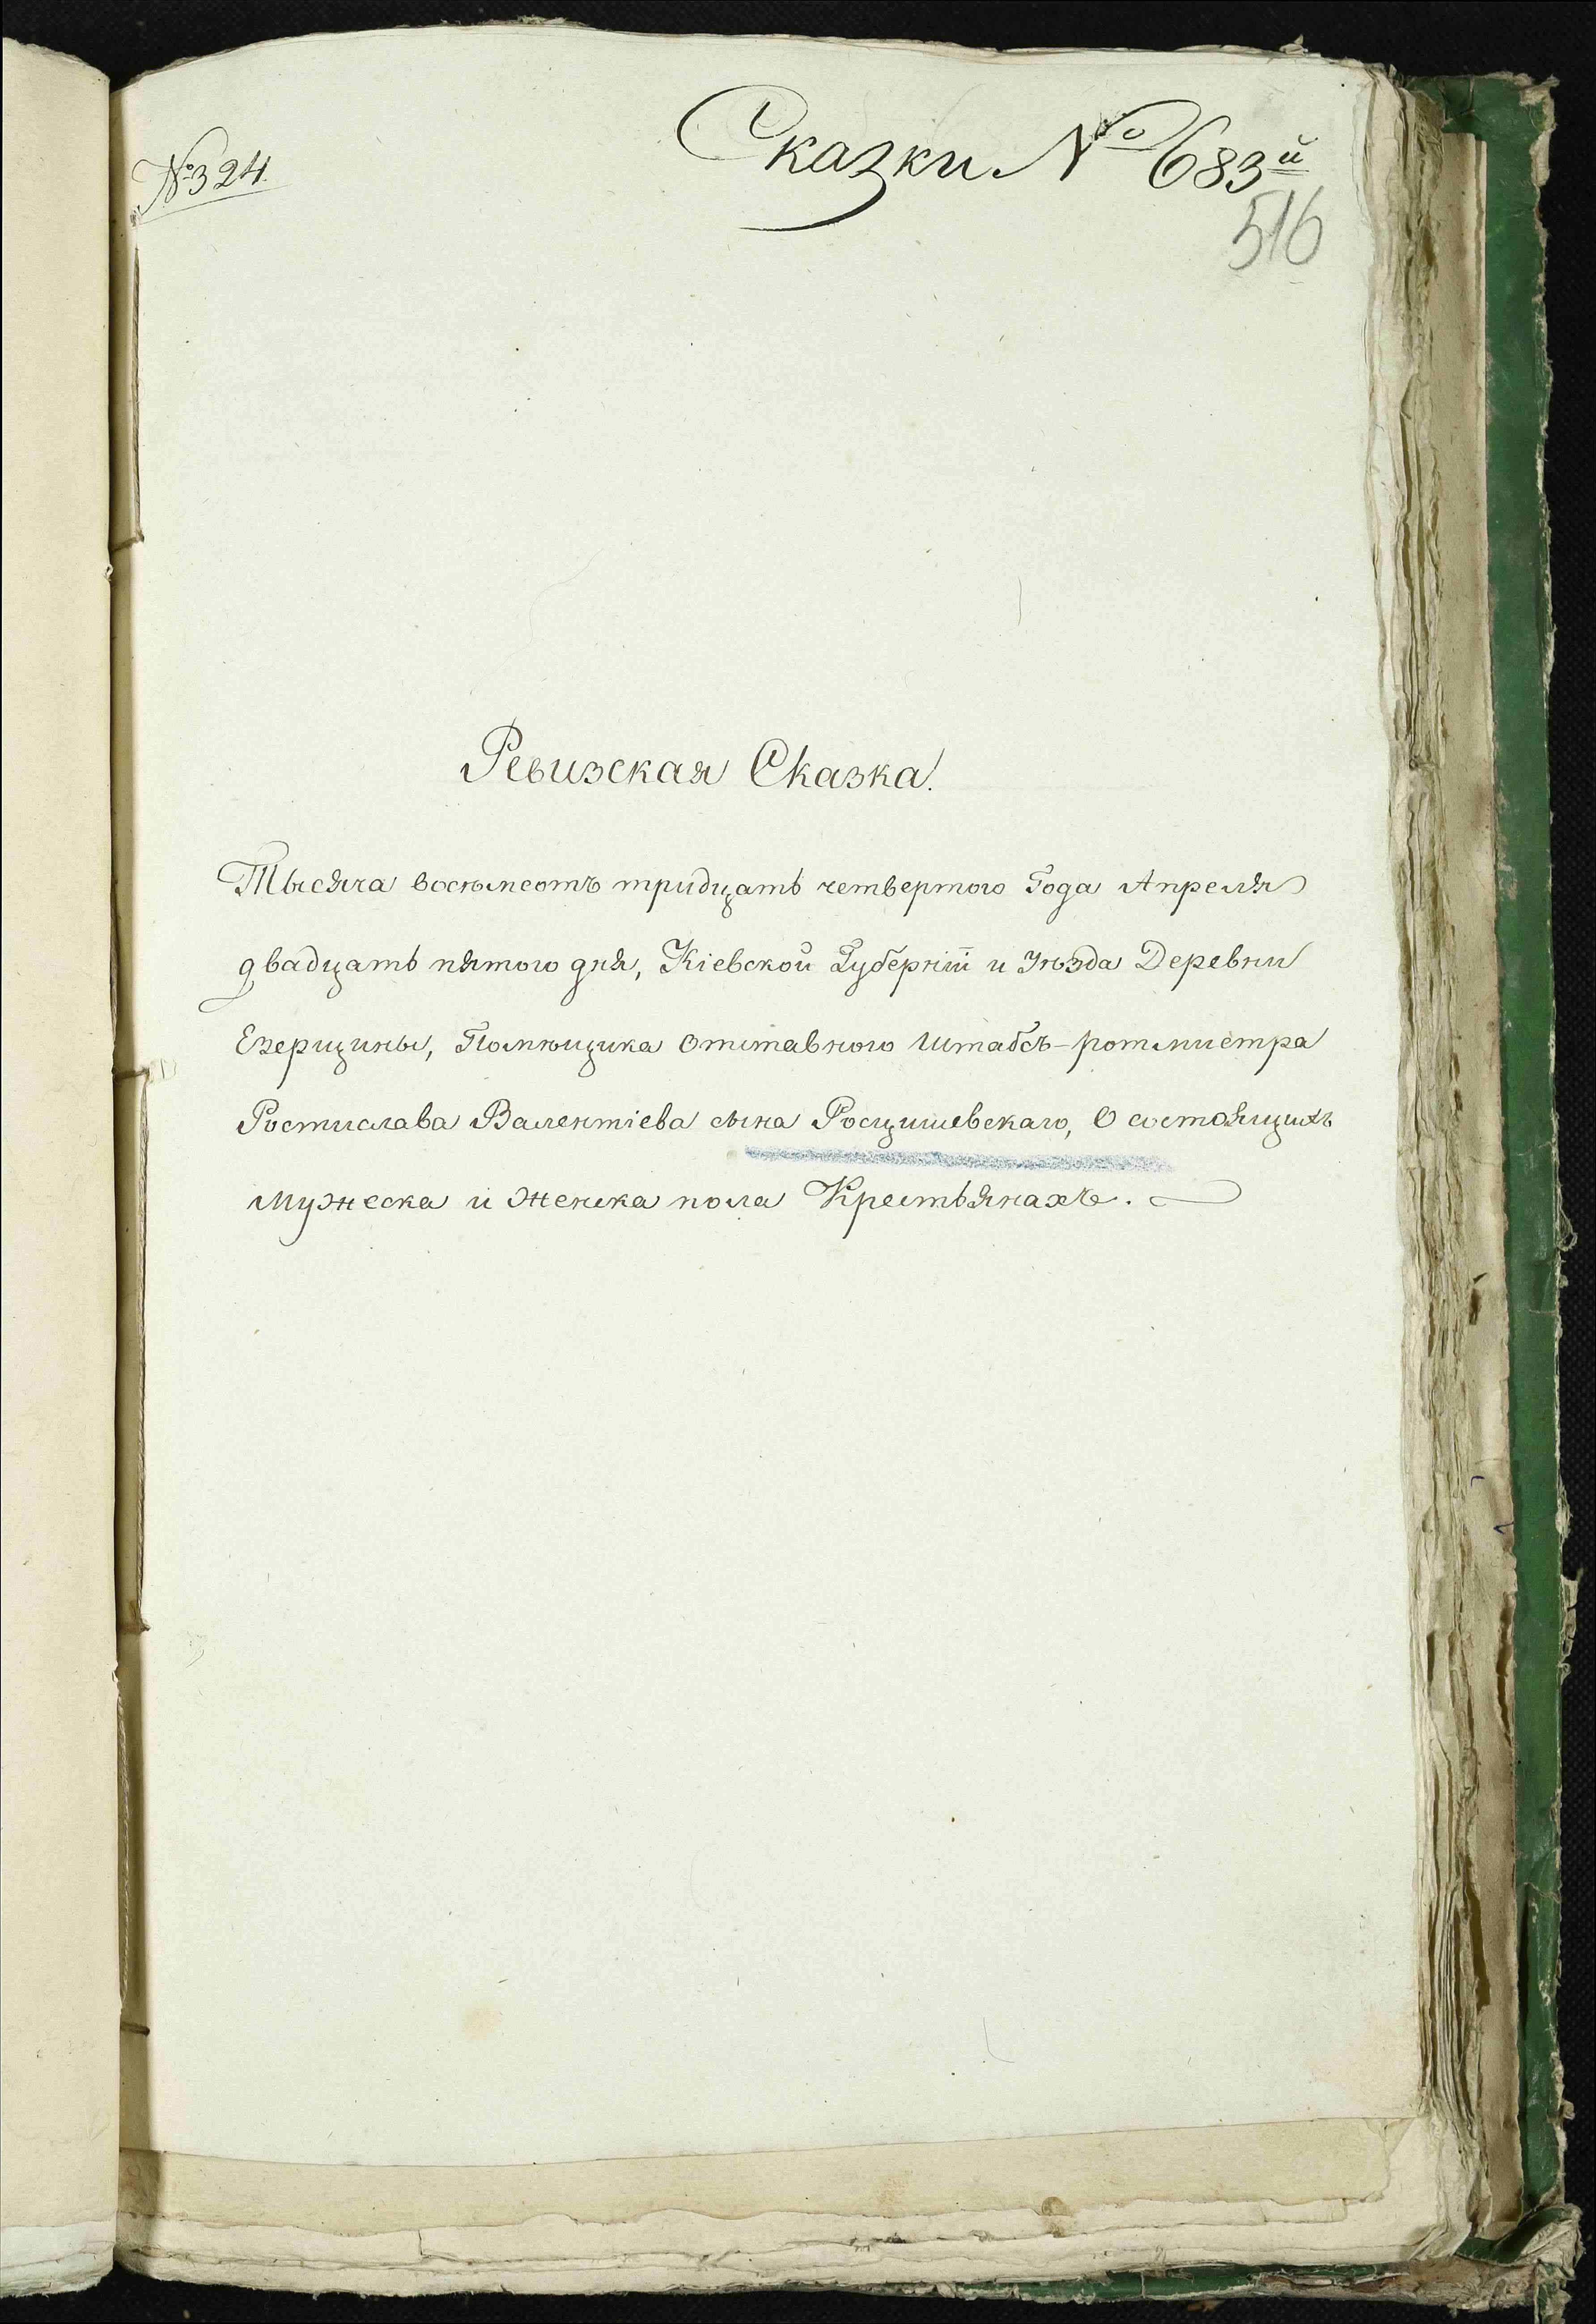 № 324.
Сказки № 683й
516
Ревизская Сказка.
Тысяча восѣмсотъ тридцать четвертого Года Апреля
двадцать пятого дня, Кіевской Губерніи и уѣзда Деревни
Езерщины, Помѣщика Отставного Штабсъ-ротмистра
Ростислава Валентіева сына Росцишевскаго, О состоящихъ
мужеска и женска пола Крестьянахъ.